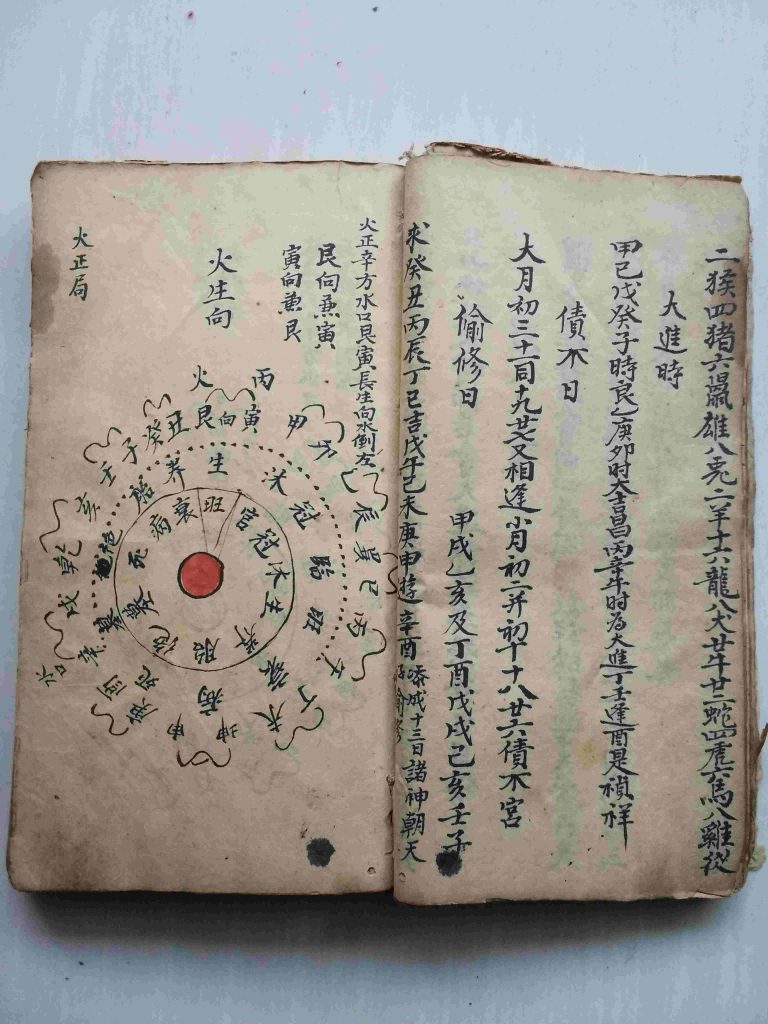 二猴四猪六鼠雄八兎二羊十六龍八犬廿牛廿二蛇四虎六馬八雞從
大進時
甲己戊癸子時良乙庚卯时大吉昌丙辛午时为大進丁壬逢酉是禎祥
債不日
大月初三十一同十九廿七又相逢小月初二并初十十八廿六債不宮
偷修日
甲戌乙亥及丁酉戊戌己亥壬子
求癸丑丙辰丁巳吉戊午己未庚申遊辛酉
十三日諸神朝天
火正辛方水口艮寅長生向水倒左
艮向兼寅
寅向兼艮
火生向
火正局
火
丙
艮向寅
甲
乙
辰
巽
巳
丙
午
丁
未
坤
申
酉
辛
戌
乾
亥
壬
子
癸
丑
生
沐
冠
臨
班
衰
病
死
墓
绝
胎
养
班
官
冠
沐
生
养
胎
绝
墓
死
病
衰